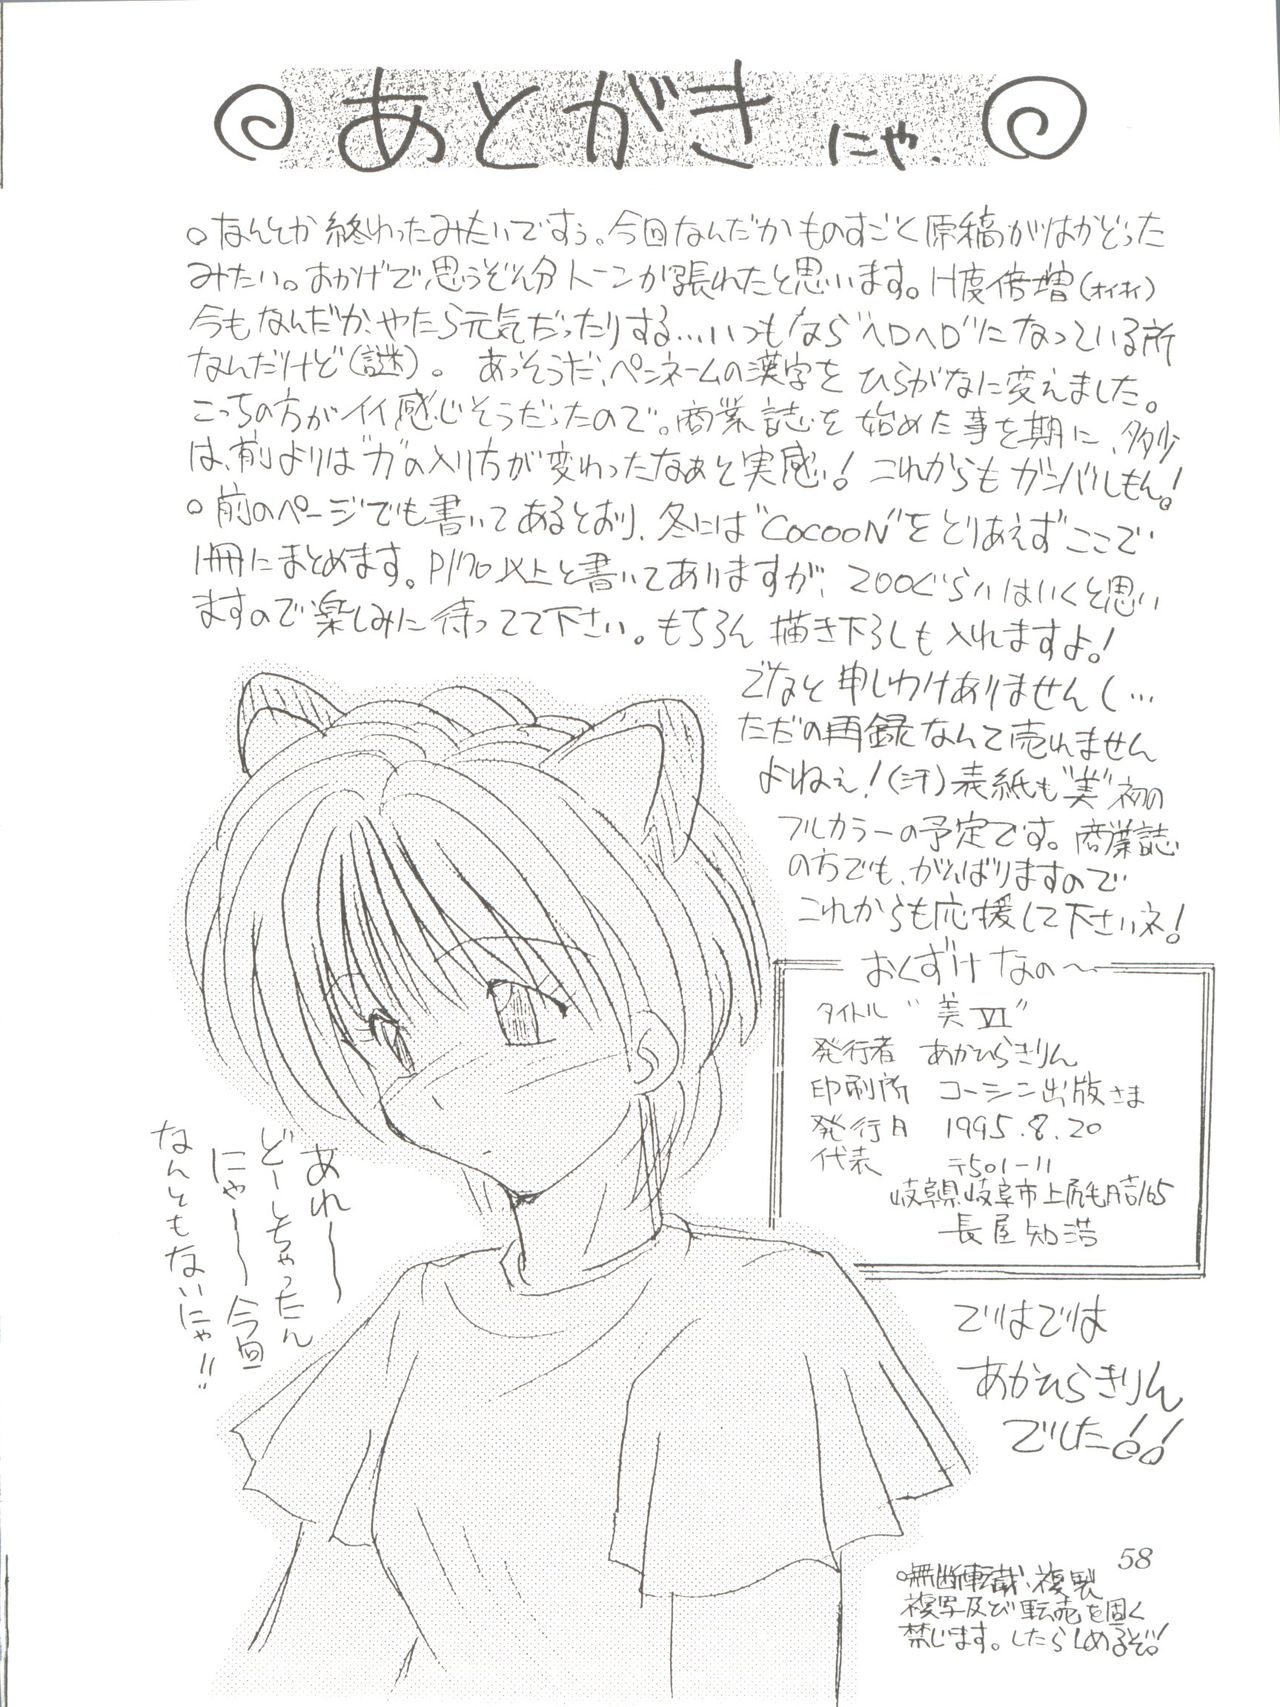 あとがき にゃ.
○なんとか終わったみたいですぅ。今回なんだかものすごく原稿がはかどった
みたい。おかげで思うぞん分トーンが張れたと思います。H度倍増(オイオイ)
今もなんだか、やたら元気だったりする…いつもなら"ヘロヘロ"になっている所
なんだけど(謎)。 あっそうだ、ペンネームの漢字をひらがなに変えました。
こっちの方がイイ感じそうだったので。商業誌を始めた事を期に、多少
は、前よりは"力"の入り方が変わったなぁと実感!これからもガンバルもん!
○前のページでも書いてあるとおり、冬には"COCOON"をとりあえずここで
1冊にまとめます。P170以上と書いてありますが、200ぐらいはいくと思い
ますので楽しみに待ってて下さい。もちろん描き下ろしも入れますよ!
でなと申しわけありませんし…
ただの再録なんて売れません
よねぇ!(汗)表紙も"美"初の
フルカラーの予定です。商業誌
の方でも、がんばりますので
これからも応援して下さいネ!
おくずけなの〜
タイトル "美Ⅵ"
発行者 あかひらきりん
印刷所 コーシン出版さま
発行日 1995.8.20
代表 〒501-11
岐阜県岐阜市上尻毛日吉165
長屋知浩
あれ〜
どーしちゃったん
にゃ〜今回
なんともないにゃ!!
ではでは
あかひらきりん
でした!!
58
○無断転載、複製
複写及び転売を固く
禁じます。したらしめるぞ!